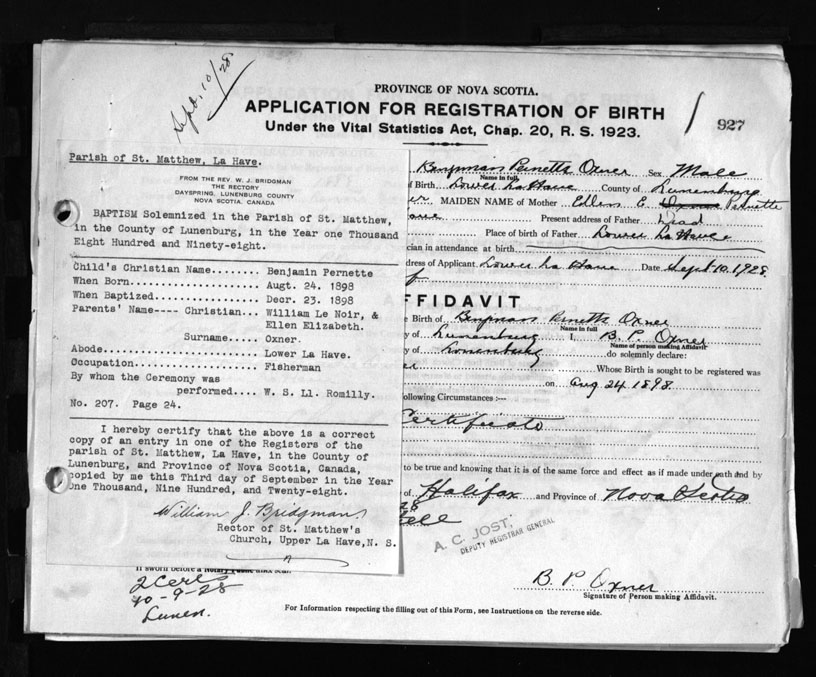 Sept. 10/28
PROVINCE OF NOVA SCOTIA.
APPLICATION FOR REGISTRATION OF BIRTH
Under the Vital Statistics Act, Chap. 20, R. S. 1923.
927
Parish of St. Matthew, La Have.
FROM THE REV. W. J. BRIDGMAN
THE RECTORY
DAYSPRING, LUNENBURG COUNTY
NOVA SCOTIA, CANADA
BAPTISM Solemnized in the Parish of St. Matthew,
in the County of Lunenburg, in the Year one Thousand
Eight Hundred and Ninety-eight.
Child's Christian Name........ Benjamin Pernette
When Born..................... Augt. 24. 1898
When Baptized................. Decr. 23. 1898
Parents' Name---- Christian... William Le Noir, &
Ellen Elizabeth.
Surname..... Oxner.
Abode......................... Lower La Have.
Occupation.................... Fisherman
By whom the Ceremony was
performed.... W. S. Ll. Romilly.
No. 207. Page 24.
I hereby certify that the above is a correct
copy of an entry in one of the Registers of the
parish of St. Matthew, La Have, in the County of
Lunenburg, and Province of Nova Scotia, Canada,
copied by me this Third day of September in the Year
One Thousand, Nine Hundred, and Twenty-eight.
William J. Bridgman
Rector of St. Matthew's
Church, Upper La Have, N. S.
Benjman Pernette Oxner Sex Male
Name in full
f Birth Lower La Have County of Lunenburg
er MAIDEN NAME of Mother Ellen E. Pernette
Present address of Father Dead
Place of birth of Father Lower La Have
cian in attendance at birth
dress of Applicant Lower La Have Date Sept 10, 1928
FFIDAVIT
e Birth of Benjman Pernette Oxner
Name in full
y of Lunenburg I, B. P. Oxner
Name of person making Affidavit
y of Lunenburg do solemnly declare:
Whose Birth is sought to be registered was
on Aug 24 1898
ollowing Circumstances :—
Certificate
to be true and knowing that it is of the same force and effect as if made under oath and by
of Halifax and Province of Nova Scotia
28
ell
A. C. JOST,
DEPUTY REGISTRAR GENERAL
If sworn before a Notary Public
2 Certs
10-9-28
Lunen.
B. P. Oxner
Signature of Person making Affidavit.
For Information respecting the filling out of this Form, see Instructions on the reverse side.